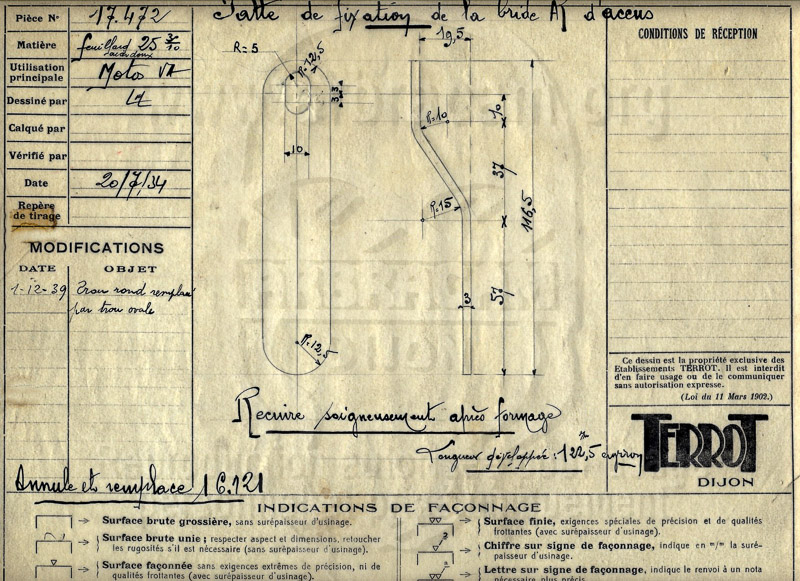 Pièce No 17.472
Matière feuillard 25 30/10
Utilisation principale Motos VA
Dessiné par
Calqué par
Vérifié par
Date 20/7/34
Repère de tirage
MODIFICATIONS
DATE OBJET
1-12-39 Trou rond remplacé
par trou ovale
Patte de fixation de la bride AR d'accus
R=5
R=12,5
3
3
10
R=12,5
19,5
R=10
R=15
3
37
57
116,5
Recuire soigneusement après formage
Longueur développée: 122,5 environ
Annule et remplace 16.121
CONDITIONS DE RÉCEPTION
Ce dessin est la propriété exclusive des
Etablissements TERROT. Il est interdit
d'en faire usage ou de le communiquer
sans autorisation expresse.
(Loi du 11 Mars 1902.)
TERROT
DIJON
INDICATIONS DE FAÇONNAGE
Surface brute grossière, sans surépaisseur d'usinage.
Surface brute unie; respecter aspect et dimensions, retoucher
les rugosités s'il est nécessaire (sans surépaisseur d'usinage).
Surface façonnée sans exigences extrêmes de précision, ni de
qualités frottantes (avec surépaisseur d'usinage).
Surface finie, exigences spéciales de précision et de qualités
frottantes (avec surépaisseur d'usinage).
3
Chiffre sur signe de façonnage, indique en m/m la suré-
paisseur d'usinage.
Lettre sur signe de façonnage, indique le renvoi à un nota
nécessaire plus précis.